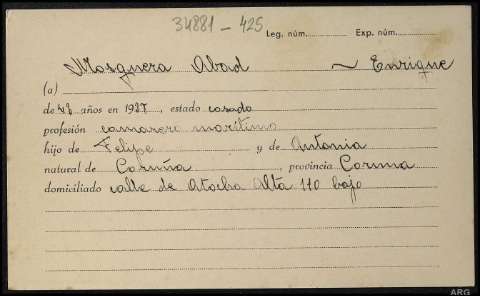 34881 - 425
Leg. núm. Exp. núm.
Mosquera Abad ~ Enrique
(a)
de 42 años en 1927, estado casado
profesión camarero marítimo
hijo de Felipe y de Antonia
natural de Coruña, provincia Coruña
domiciliado calle de Atocha Alta 110 bajo
ARG